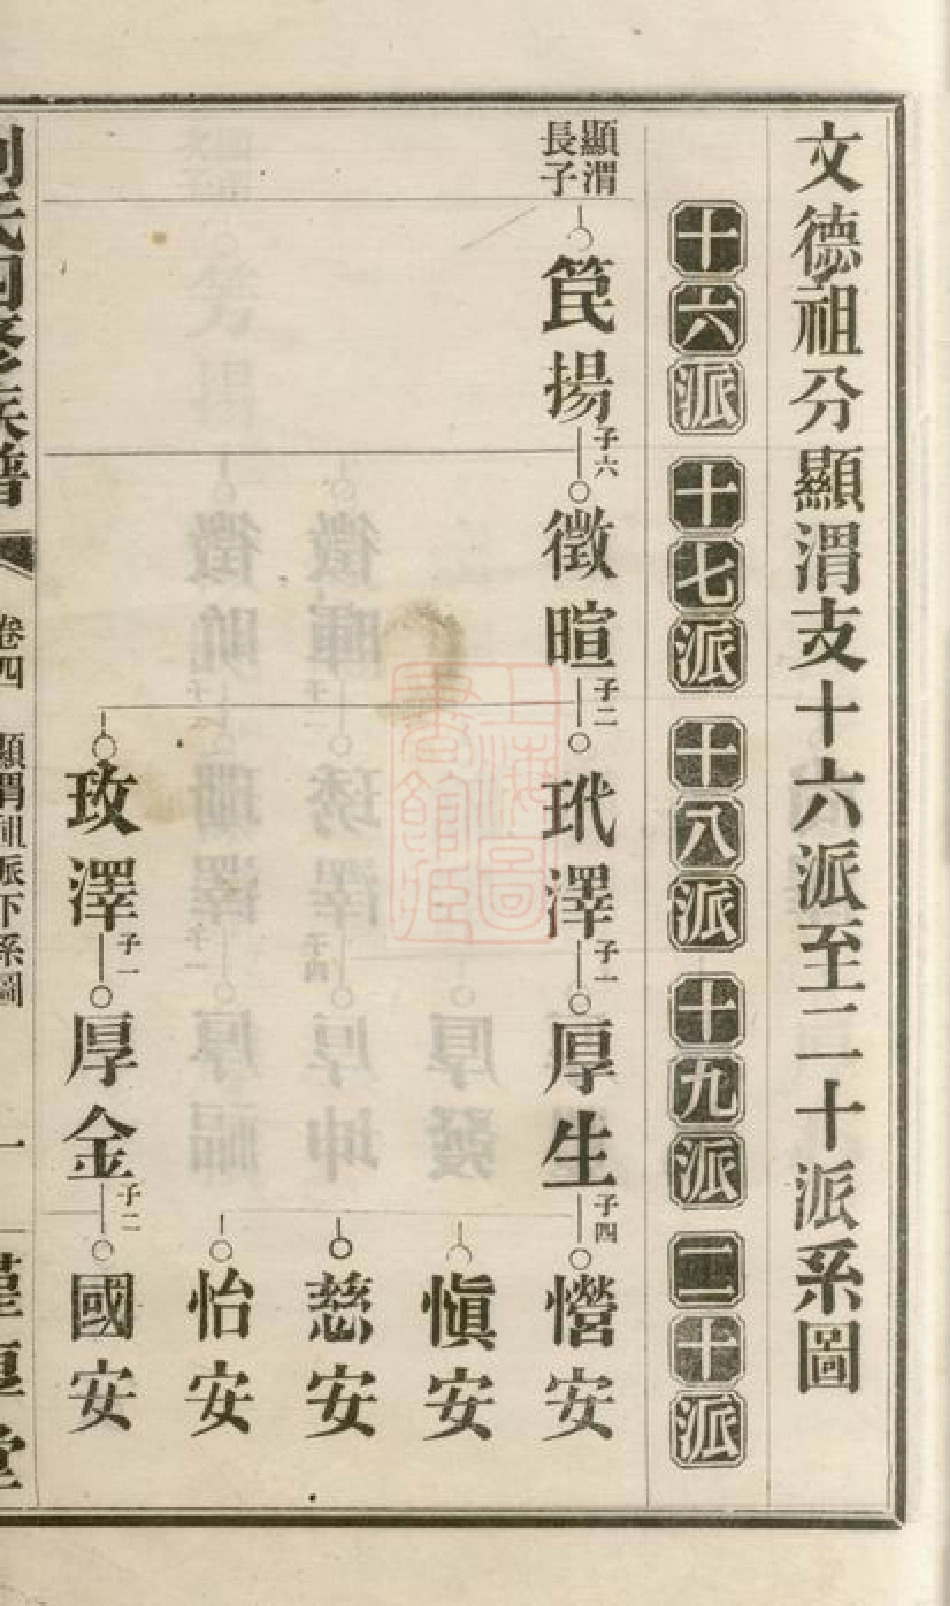 文德祖分顯渭支十六派至二十派系圖
十六派 十七派 十八派 十九派 二十派
顯渭
長子
筤揚
子六
徵暄
子二
玳澤
子一
厚生
子四
憕安
愼安
慈安
怡安
玫澤
子一
厚金
子二
國安
劉氏四修族譜 卷四 顯渭祖派下系圖 一
上海圖書館藏